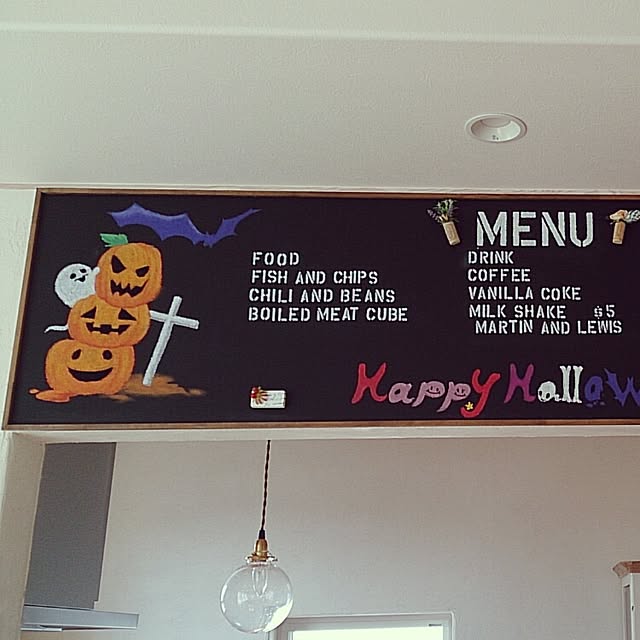 MENU
FOOD
FISH AND CHIPS
CHILI AND BEANS
BOILED MEAT CUBE
DRINK
COFFEE
VANILLA COKE
MILK SHAKE $5
MARTIN AND LEWIS
Happy Hallow